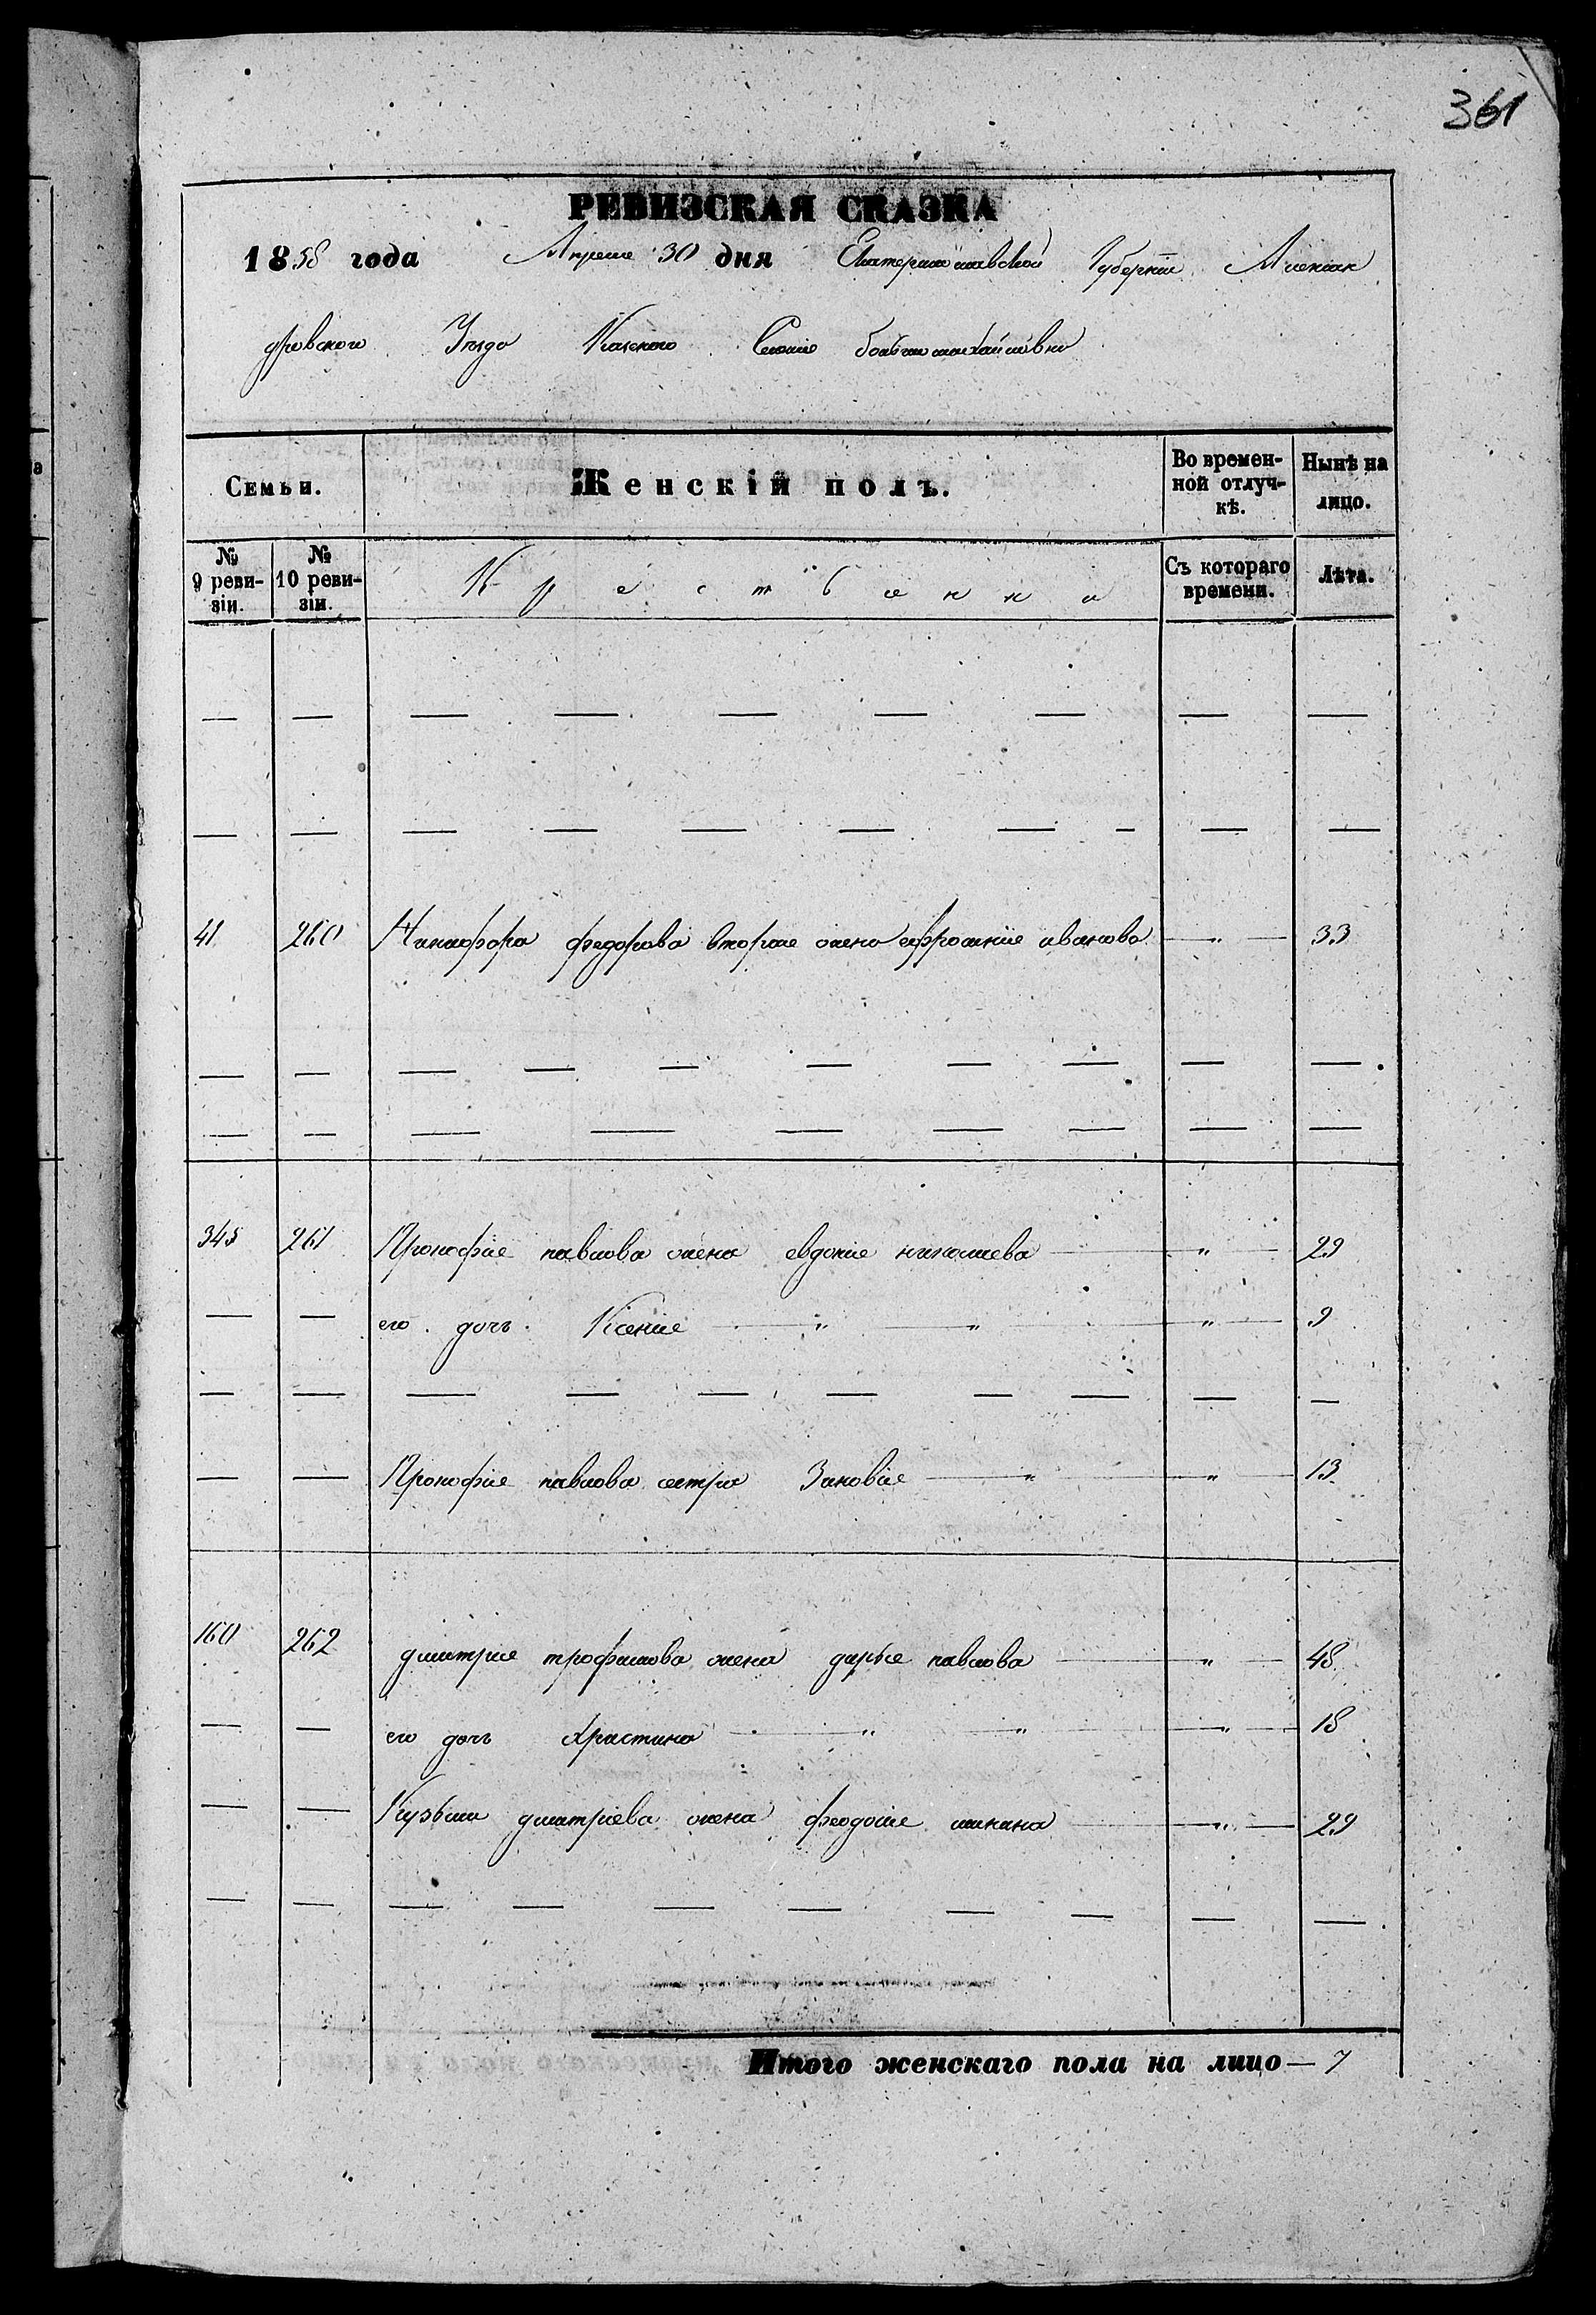 361
РЕВИЗСКАЯ СКАЗКА
1858 года Апреля 30 дня Екатеринославской Губернiи Алексан
дровского Уезда Казенного Селенiя больше михайловки
Семьи. Женскій полъ. Во времен-ной отлуч-кѣ. Нынѣ на лицо.
№ 9 реви-зіи. № 10 реви-зіи. Крестьянки Съ котораго времени. Лѣта.
— — — — — — — — —
— — — — — — — — — —
41 260 Никифора федорова вторая жена ефросинiя иванова — " — 33
— — — — — — — — — —
— — — — — — — — —
345 261 Прокофiя павлова жена евдокiя николаева — " — 29
— — его дочь Ксенiя — " — " — " — 9
— — — — — — — — — —
— — Прокофiя павлова сестра Зиновiя — " — " — 13
160 262 дмитрiя трофимова жена дарья павлова — " — 48
— — его дочь Христина — " — " — " — 18
— — Кузьмы дмитрiева жена феодосiя — " — 29
— — — — — — — — — —
Итого женскаго пола на лицо — 7